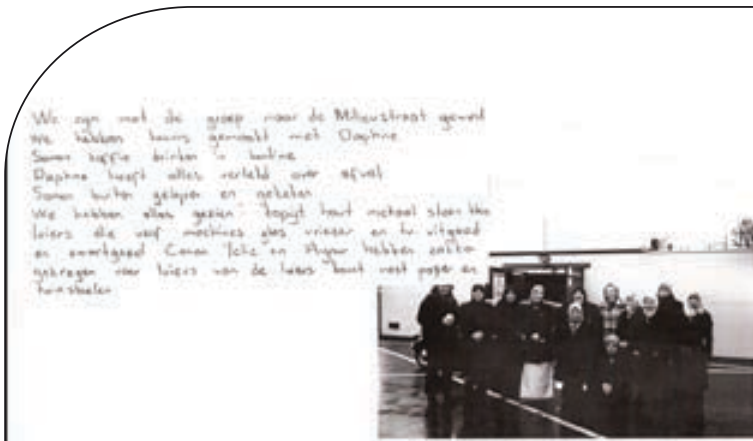 We zijn met de groep naar de Milieustraat geweest
We hebben kennis gemaakt met Daphne
Samen koffie drinken in kantine
Daphne heeft alles verteld over afval
Samen buiten gelopen en gekeken
We hebben alles gezien tapijt hout metaal
luiers die verf machines glas vriezer en tv witgoed
en zwartgoed Canan en hebben zakken
gekregen voor luiers van de hout rest papier en